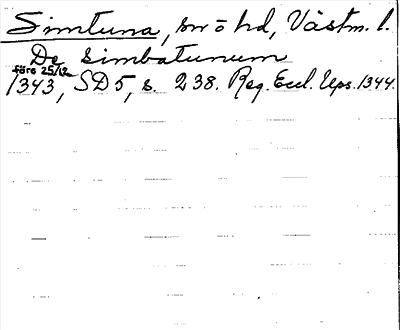 Simtuna, sn ō hd, Västm. l.
De Simbatunum
före 25/12
1343, SD 5, s. 238. Reg. Eccl. Ups. 1344.